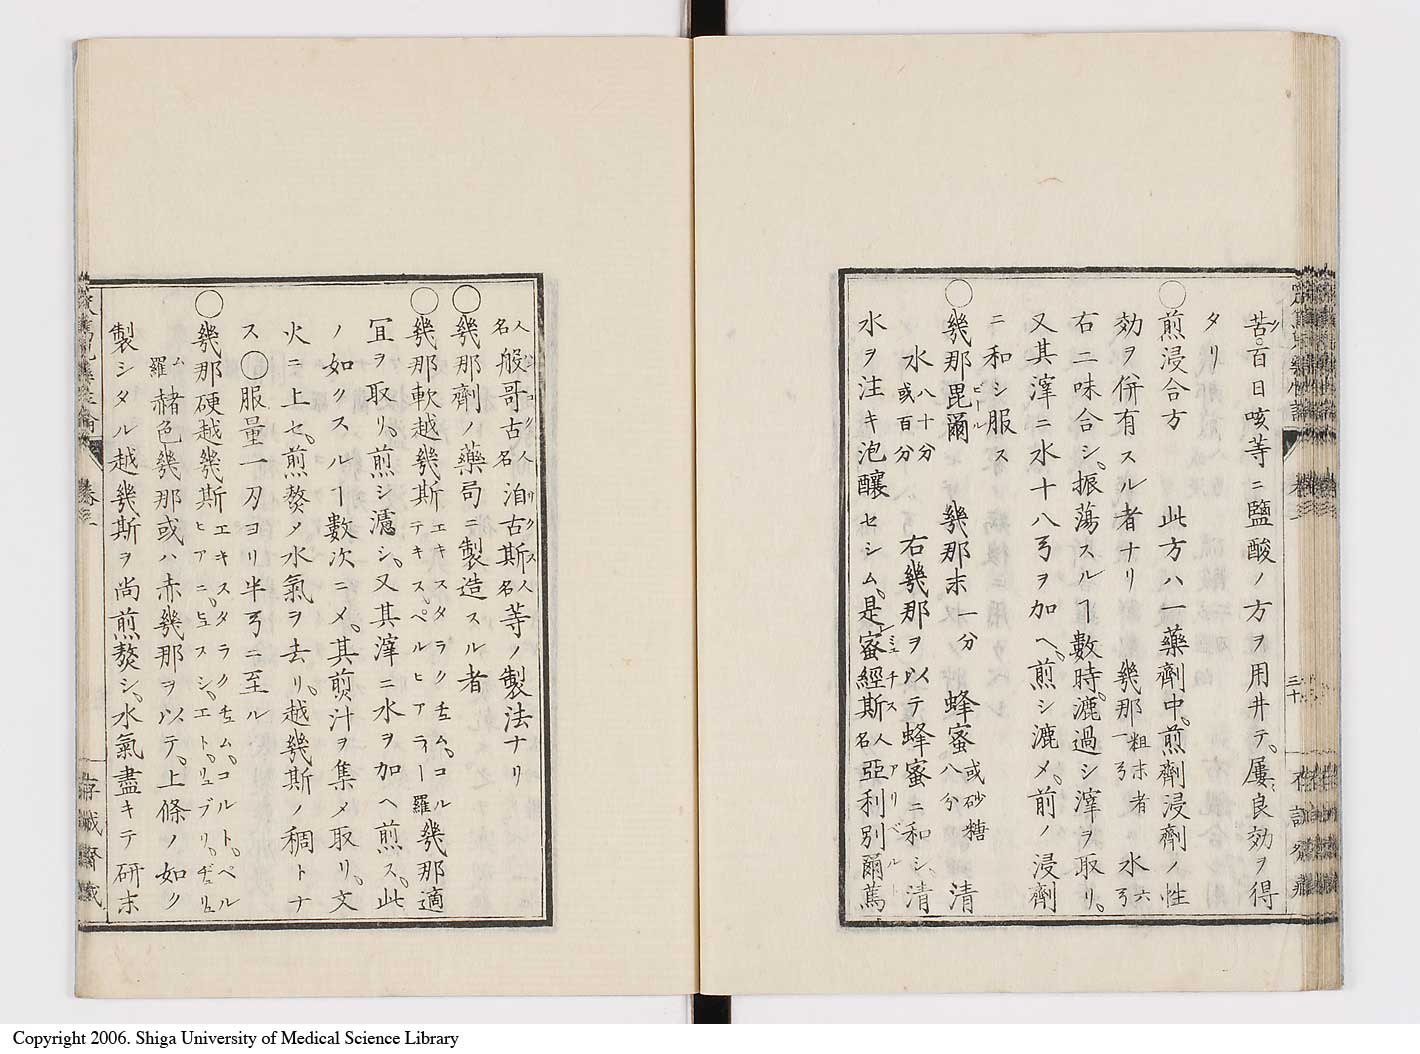 苦。百日咳等ニ鹽酸ノ方ヲ用井テ。屢良効ヲ得
タリ
○煎浸合方 此方ハ一藥劑中。煎劑浸劑ノ性
効ヲ併有スル者ナリ 幾那粗末者一弓 水六弓
右二味合シ。振蕩スルヿ數時。漉過シ滓ヲ取リ。
又其滓ニ水十八弓ヲ加ヘ。煎シ漉メ。前ノ浸劑
ニ和シ服ス
○幾那毘爾ビール 幾那末一分 蜂蜜或砂糖八分 清
水八十分或百分 右幾那ヲ以テ蜂蜜ニ和シ、清
水ヲ注キ泡釀セシム。是蜜經斯人名亞利別爾篤
人名般哥古人名泊古斯人名等ノ製法ナリ
○幾那劑ノ藥局ニ製造スル者
○幾那軟越幾斯エキスタラクチュム。コルテキス。ペルヒアラー羅幾那適
宜ヲ取リ。煎シ濾シ。又其滓ニ水ヲ加ヘ煎ス。此
ノ如クスルヿ數次ニメ。其煎汁ヲ集メ取リ。文
火ニ上セ。煎熬メ水氣ヲ去リ。越幾斯ノ稠トナ
ス○服量一刃ヨリ半弓ニ至ル
○幾那硬越幾斯エキスタラクチュム。コルト。ペルヒアニ。ヒュスシ。エト。リュブリ。ヂュリュ
ム羅 赭色幾那或ハ赤幾那ヲ以テ。上條ノ如ク
製シタル越幾斯ヲ尚煎熬シ。水氣盡キテ研末
卷三
三十
存誠齋藏
Copyright 2006. Shiga University of Medical Science Library